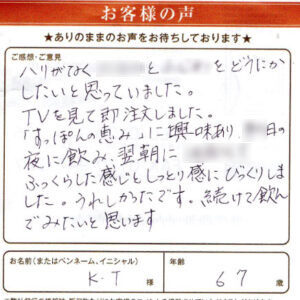 お客様の声
★ありのままのお声をお待ちしております★
ご感想・ご意見
ハリがなく と をどうにか
したいと思っていました。
TVを見て即注文しました。
「すっぽんの恵み」に興味あり、 日の
夜に飲み、翌朝に
ふっくらした感じとしっとり感にびっくりしま
した。うれしかったです。続けて飲ん
でみたいと思います
お名前(またはペンネーム、イニシャル)
年齢
K.T 様
67 歳